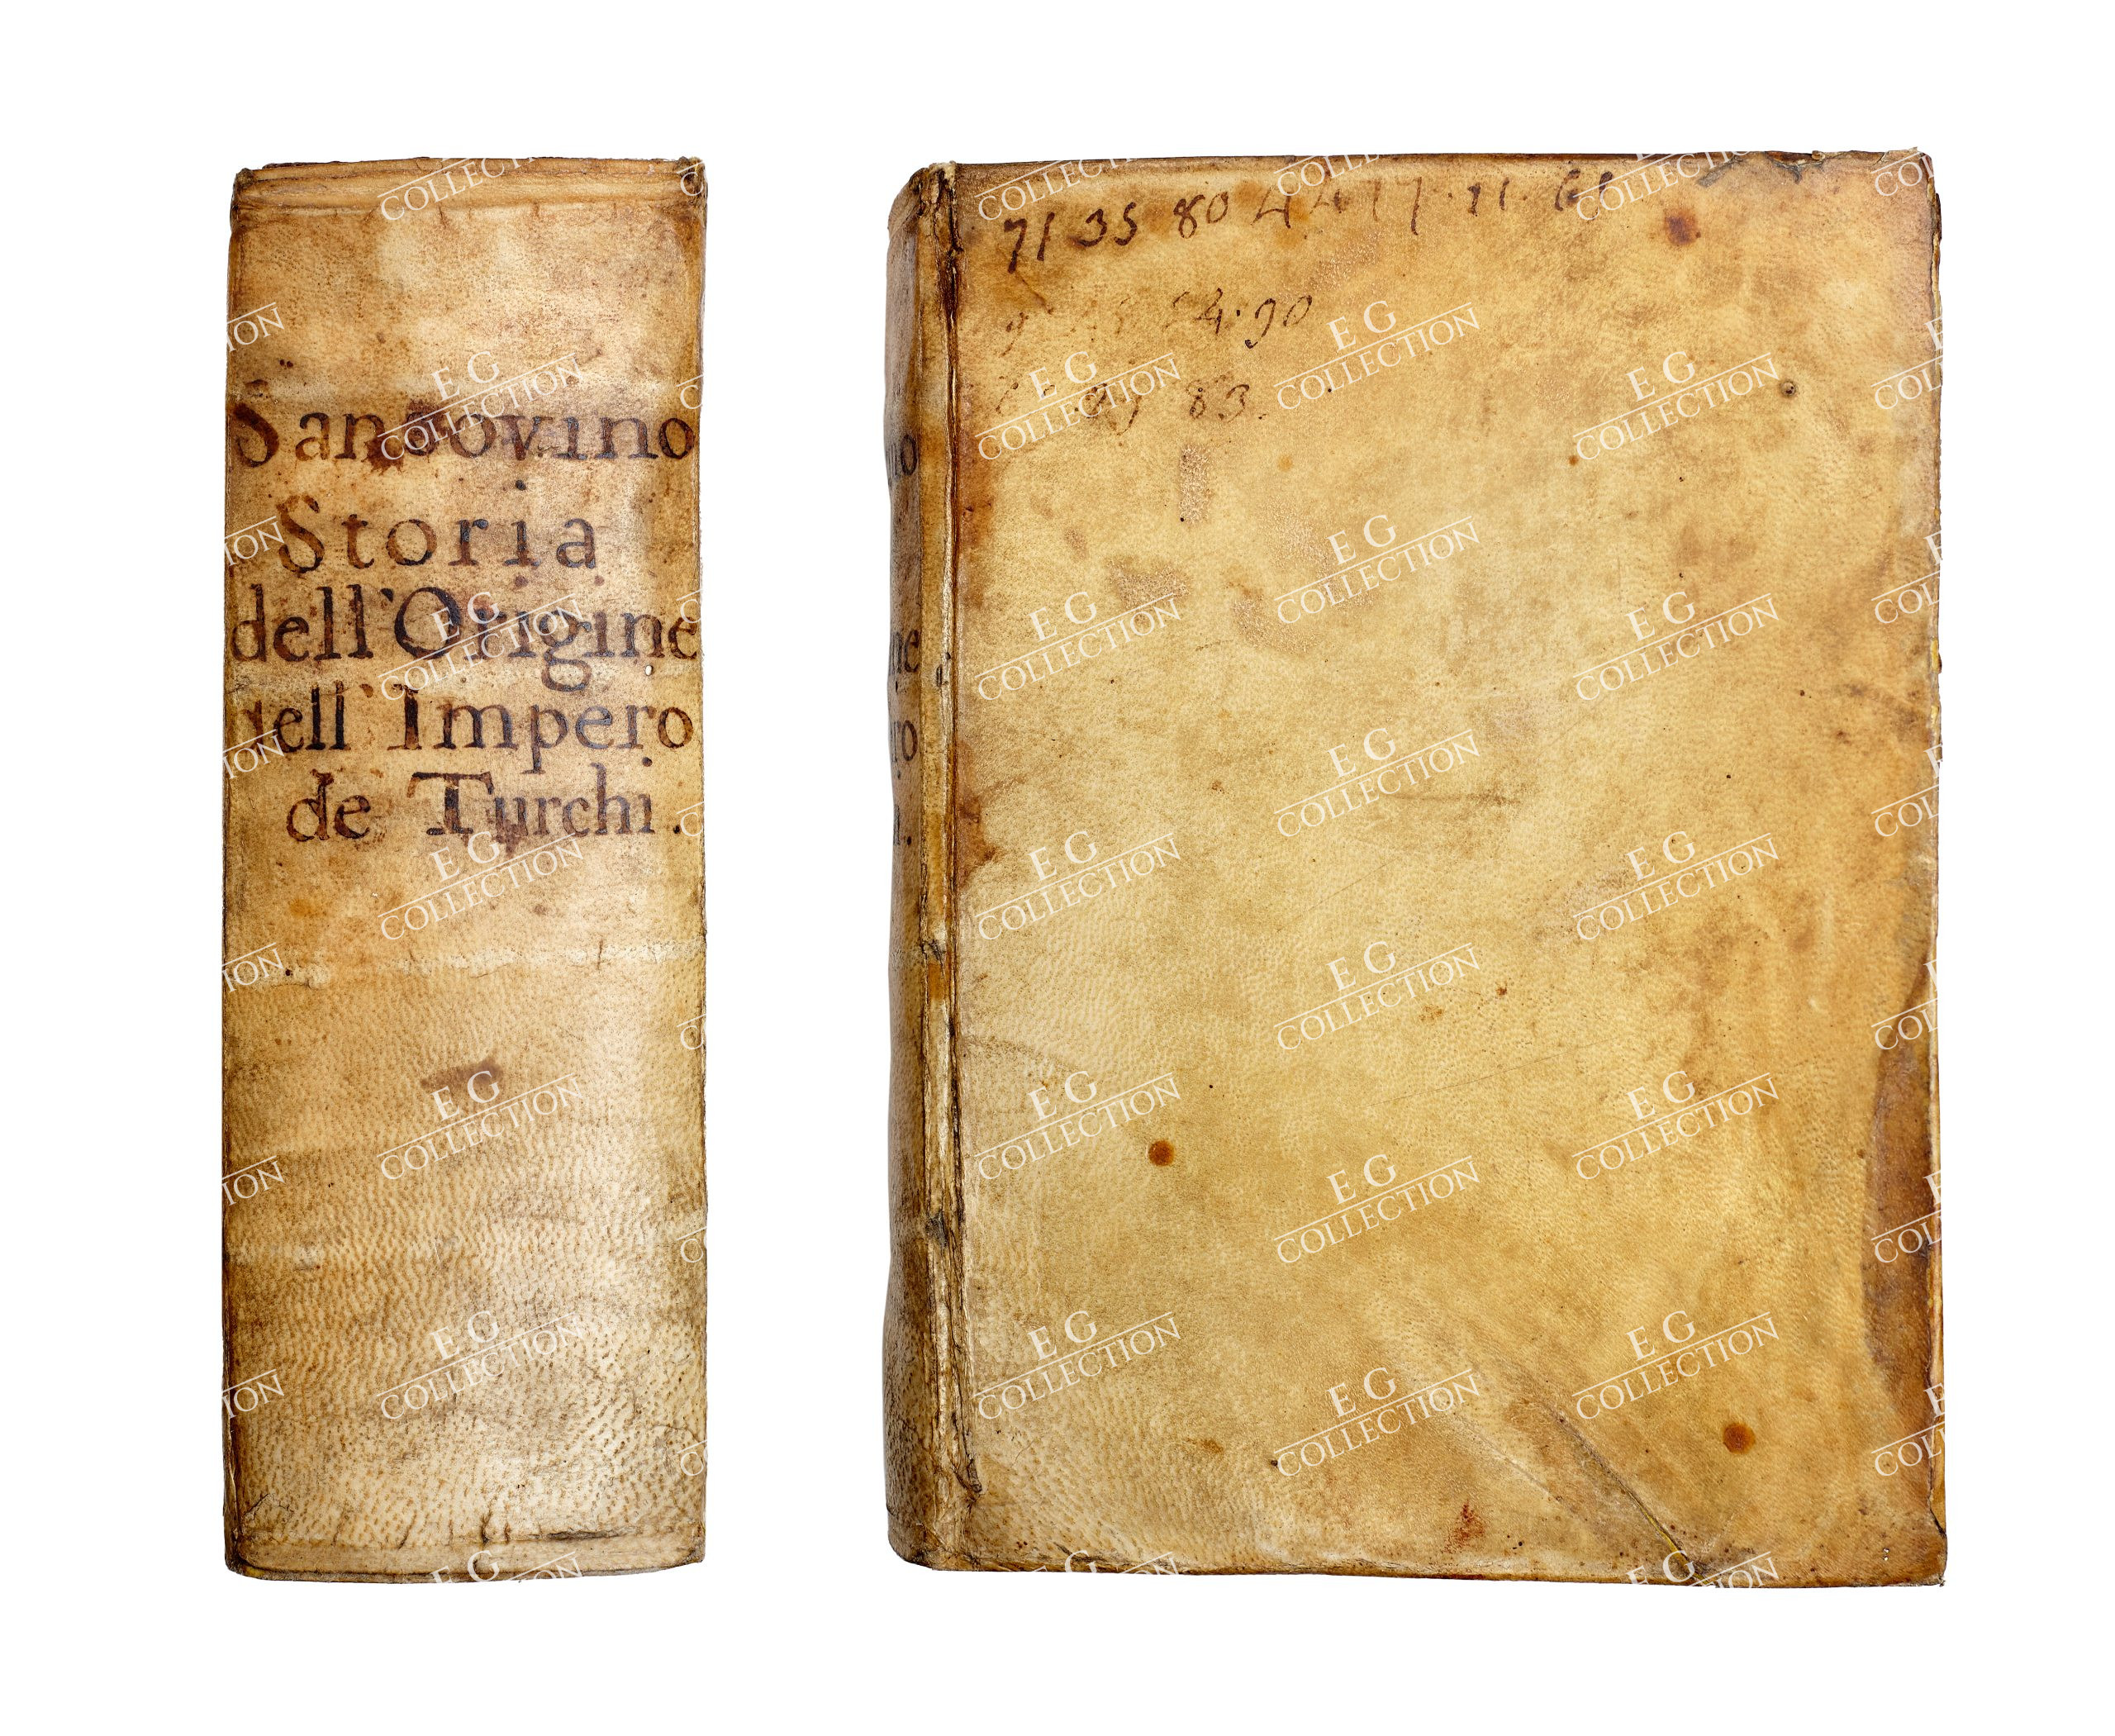 Sansovino
Storia
dell'Origine
dell'Impero
de Turchi.
71 35 80 44 17 · 11 ·
4 · 90
83
E G
COLLECTION